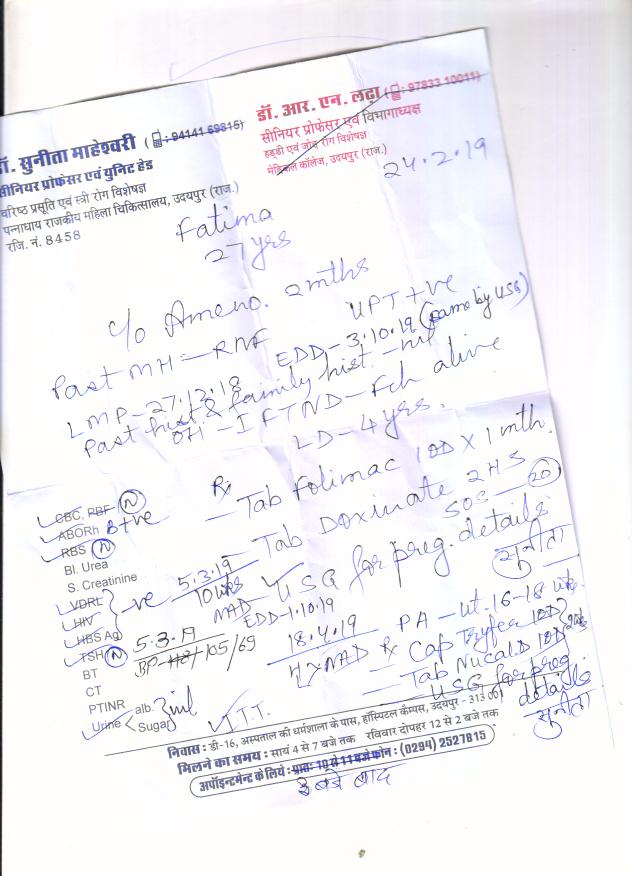 डॉ. सुनीता माहेश्वरी (: 94141 69815)
सीनियर प्रोफेसर एवं युनिट हेड
वरिष्ठ प्रसूति एवं स्त्री रोग विशेषज्ञ
पन्नाधाय राजकीय महिला चिकित्सालय, उदयपुर (राज.)
रजि. नं. 8458
डॉ. आर. एन. लढ़ा (: 97833 10011)
सीनियर प्रोफेसर एवं विभागाध्यक्ष
हड्डी एवं जोड़ रोग विशेषज्ञ
मेडिकल कॉलेज, उदयपुर (राज.)
24.2.19
Fatima
27 yrs
c/o Ameno. 2 mths
UPT +ve
Past MH — RNF
LMP - 27.12.18 EDD - 3.10.19 (same by USG)
Past hist & family hist. - nil
OH - I FTND - Fch alive
LD - 4 yrs.
Rx
— Tab Folimac 1OD X 1 mth.
— Tab Doxinate 2HS
SOS — 20
— USG for preg. details
सुनीता
CBC, PBF N
ABORh B+ve
RBS N
Bl. Urea
S. Creatinine
VDRL
HIV
HBS Ag
-ve
TSH N
BT
CT
PTINR
Urine alb. Sugar nil
5.3.19
10 wks
NAD
EDD - 1.10.19
5.3.19
BP - 105/69
18.4.19
H/x NAD
Rx PA - ut. 16-18 wks
— Cap 1OD
— Tab 1OD
USG for preg. details
सुनीता
T.T.
निवास : डी-16, अस्पताल की धर्मशाला के पास, हॉस्पिटल कैम्पस, उदयपुर - 313 001
मिलने का समय : सायं 4 से 7 बजे तक रविवार दोपहर 12 से 2 बजे तक
अपॉइन्टमेन्ट के लिये : प्रातः 10 से 11 बजे फोन : (0294) 2527815
3 बजे बाद